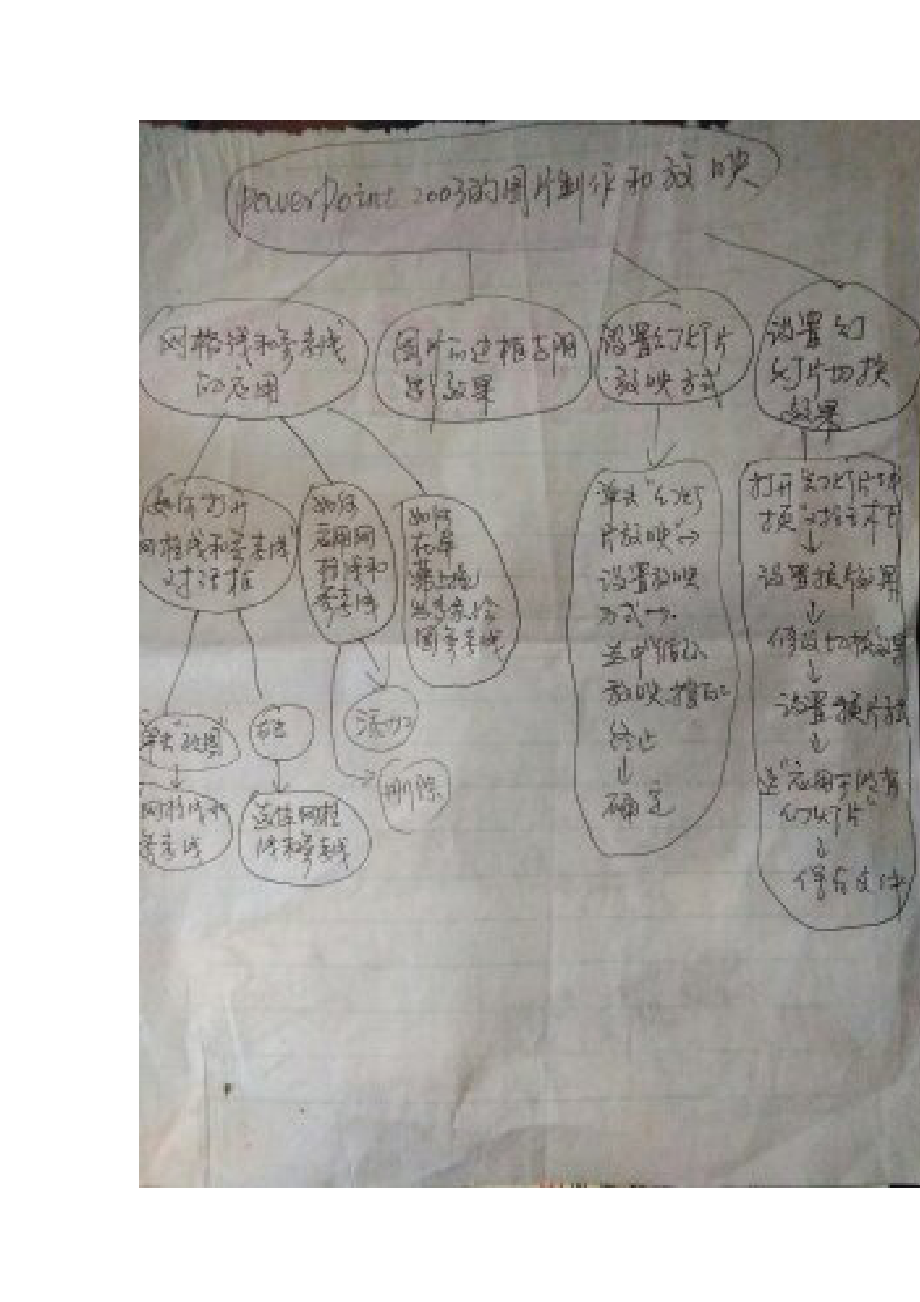 PowerPoint 2003的图片制作和放映
网格线和参考线
的应用
图片的边框
效果
设置幻灯片
放映方式
设置幻
灯片切换
效果
如何打开
网格线和参考线"
对话框
如何
应用网
格线和
参考线
如何
在屏
幕上
图参考线
单击"幻灯
片放映"→
设置放映
方式→
选中"循环
放映,按ESC
终止
↓
确定
打开"幻灯片切
换"
↓
设置换片效果
↓
修改切换效果
↓
设置换片方式
↓
选"应用于所有
幻灯片"
↓
保存文件
单击"视图"
右击
添加
删除
网格线和
参考线
选择网格
线和参考线